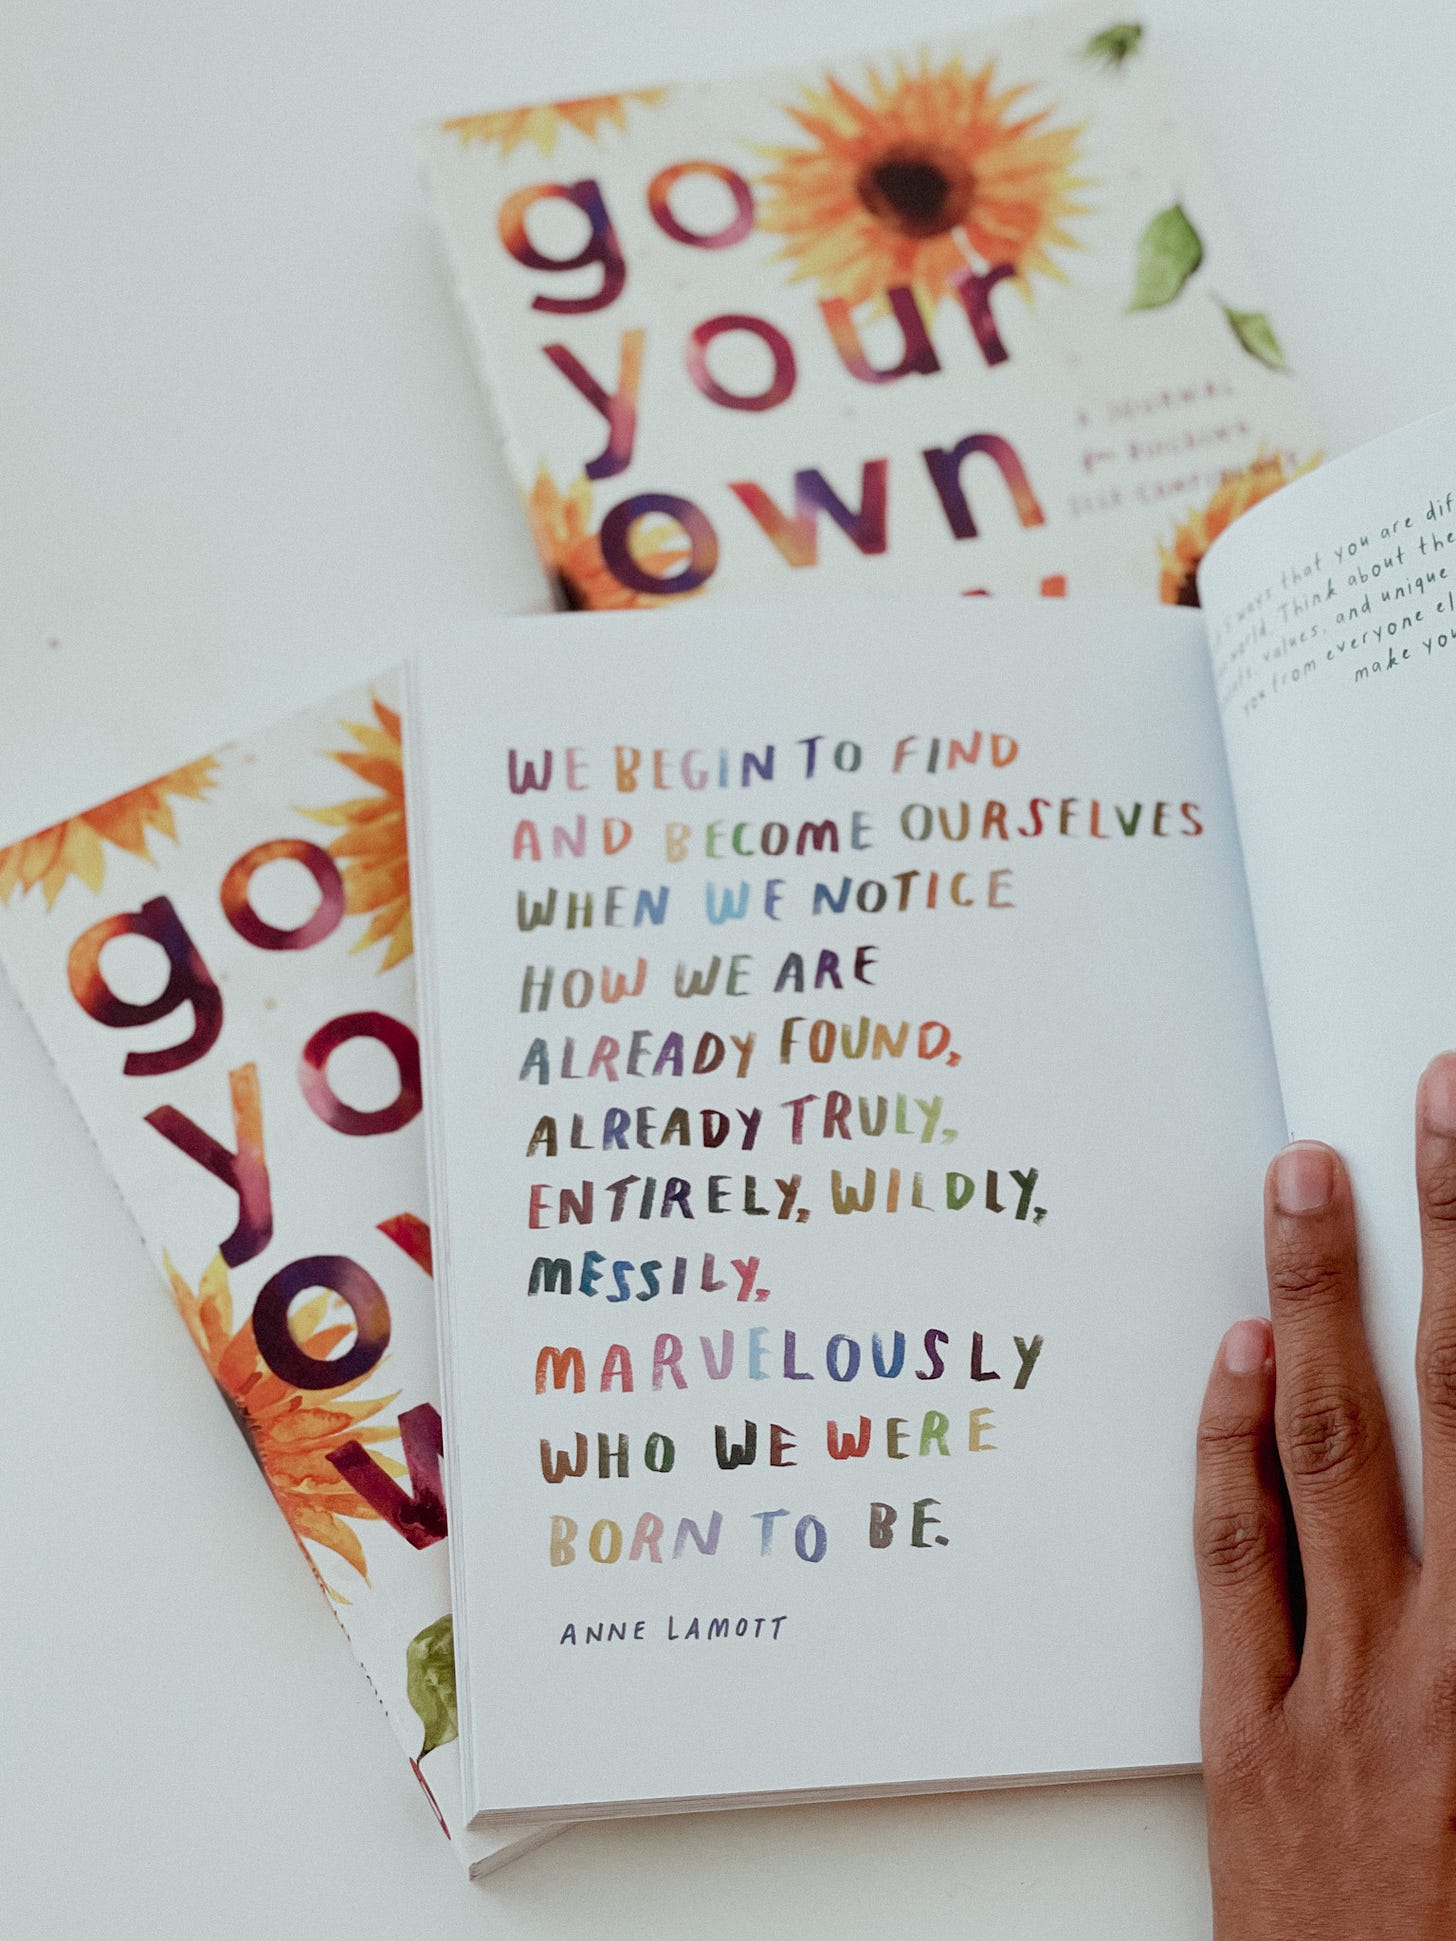 go
your
own
A JOURNAL
for BUILDING
SELF-CONFIDENCE
ways that you are dif
world. Think about the
values, and unique
you from everyone el
make you
go
yo
ow
WE BEGIN TO FIND
AND BECOME OURSELVES
WHEN WE NOTICE
HOW WE ARE
ALREADY FOUND,
ALREADY TRULY,
ENTIRELY, WILDLY,
MESSILY,
MARVELOUSLY
WHO WE WERE
BORN TO BE.
ANNE LAMOTT